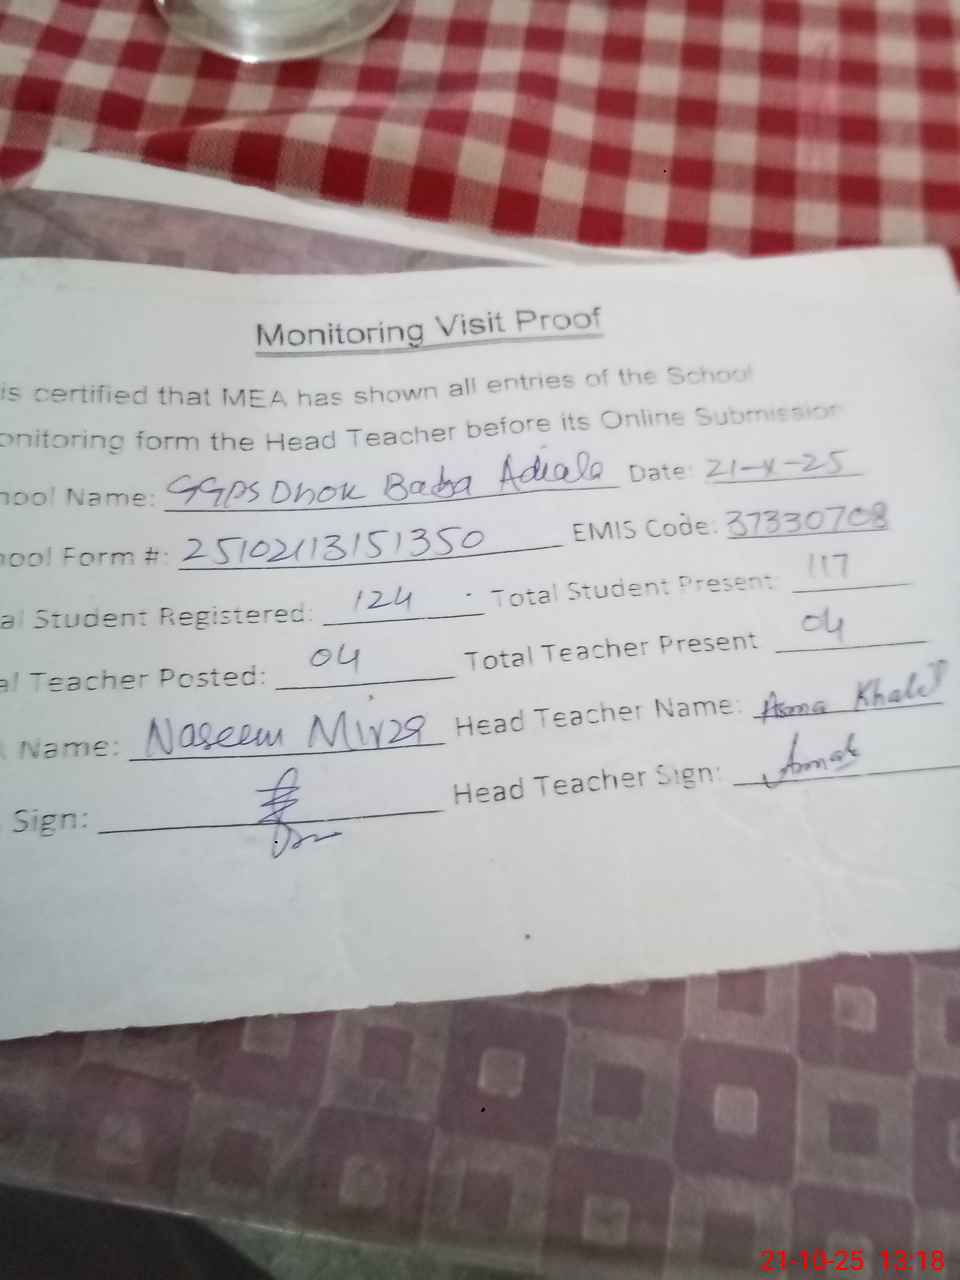 Monitoring Visit Proof
is certified that MEA has shown all entries of the School
onitoring form the Head Teacher before its Online Submission
hool Name: GGPS Dhok Baba Adiala Date: 21-X-25
hool Form #: 25102113151350 EMIS Code: 37330708
al Student Registered: 124 Total Student Present: 117
al Teacher Posted: 04 Total Teacher Present 04
Name: Naseem Mirza Head Teacher Name: Asma Khalid
Sign: Head Teacher Sign:
21-10-25 13:18